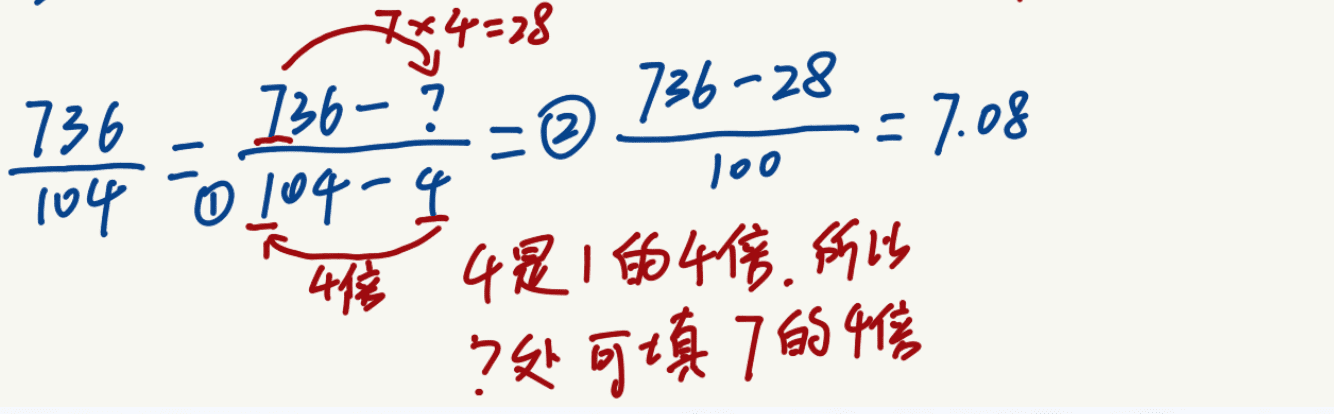 7×4=28
736/104 =① 736-?/104-4 =② 736-28/100 = 7.08
4倍
4是1的4倍.所以
?处可填7的4倍